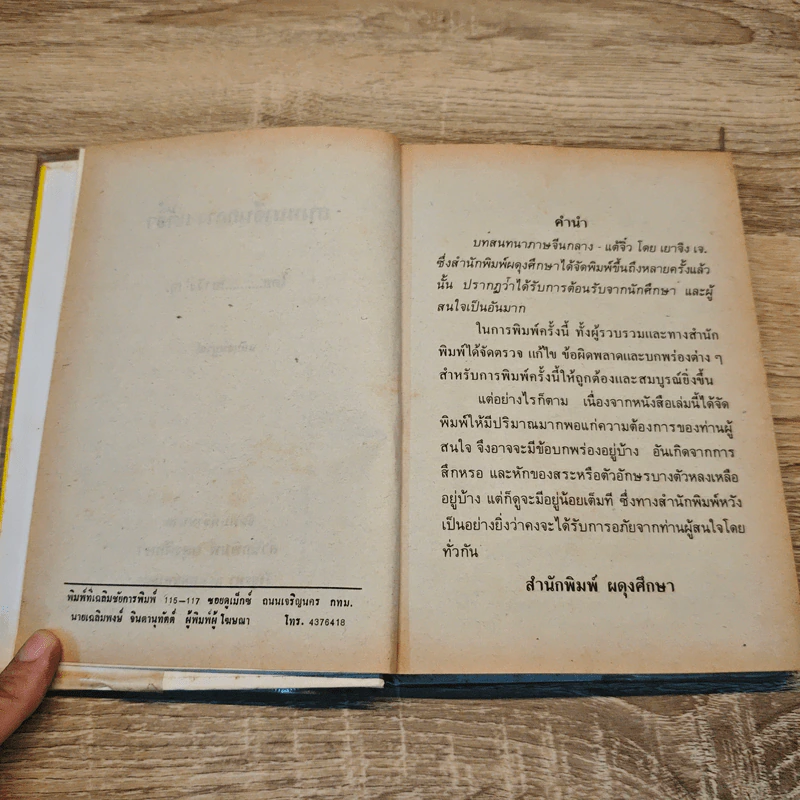 พิมพ์ที่เฉลิมชัยการพิมพ์ 115-117 ซอยดูเม็กซ์ ถนนเจริญนคร กทม.
นายเฉลิมพงษ์ จินดานุทัตต์ ผู้พิมพ์ผู้โฆษณา โทร. 4376418
คำนำ
บทสนทนาภาษจีนกลาง - แต้จิ๋ว โดย เยาจิง เจ.
ซึ่งสำนักพิมพ์ผดุงศึกษาได้จัดพิมพ์ขึ้นถึงหลายครั้งแล้ว
นั้น ปรากฏว่าได้รับการต้อนรับจากนักศึกษา และผู้
สนใจเป็นอันมาก
ในการพิมพ์ครั้งนี้ ทั้งผู้รวบรวมและทางสำนัก
พิมพ์ได้จัดตรวจ แก้ไข ข้อผิดพลาดและบกพร่องต่าง ๆ
สำหรับการพิมพ์ครั้งนี้ให้ถูกต้องและสมบูรณ์ยิ่งขึ้น
แต่อย่างไรก็ตาม เนื่องจากหนังสือเล่มนี้ได้จัด
พิมพ์ให้มีปริมาณมากพอแก่ความต้องการของท่านผู้
สนใจ จึงอาจจะมีข้อบกพร่องอยู่บ้าง อันเกิดจากการ
สึกหรอ และหักของสระหรือตัวอักษรบางตัวหลงเหลือ
อยู่บ้าง แต่ก็ดูจะมีอยู่น้อยเต็มที ซึ่งทางสำนักพิมพ์หวัง
เป็นอย่างยิ่งว่าคงจะได้รับการอภัยจากท่านผู้สนใจโดย
ทั่วกัน
สำนักพิมพ์ ผดุงศึกษา